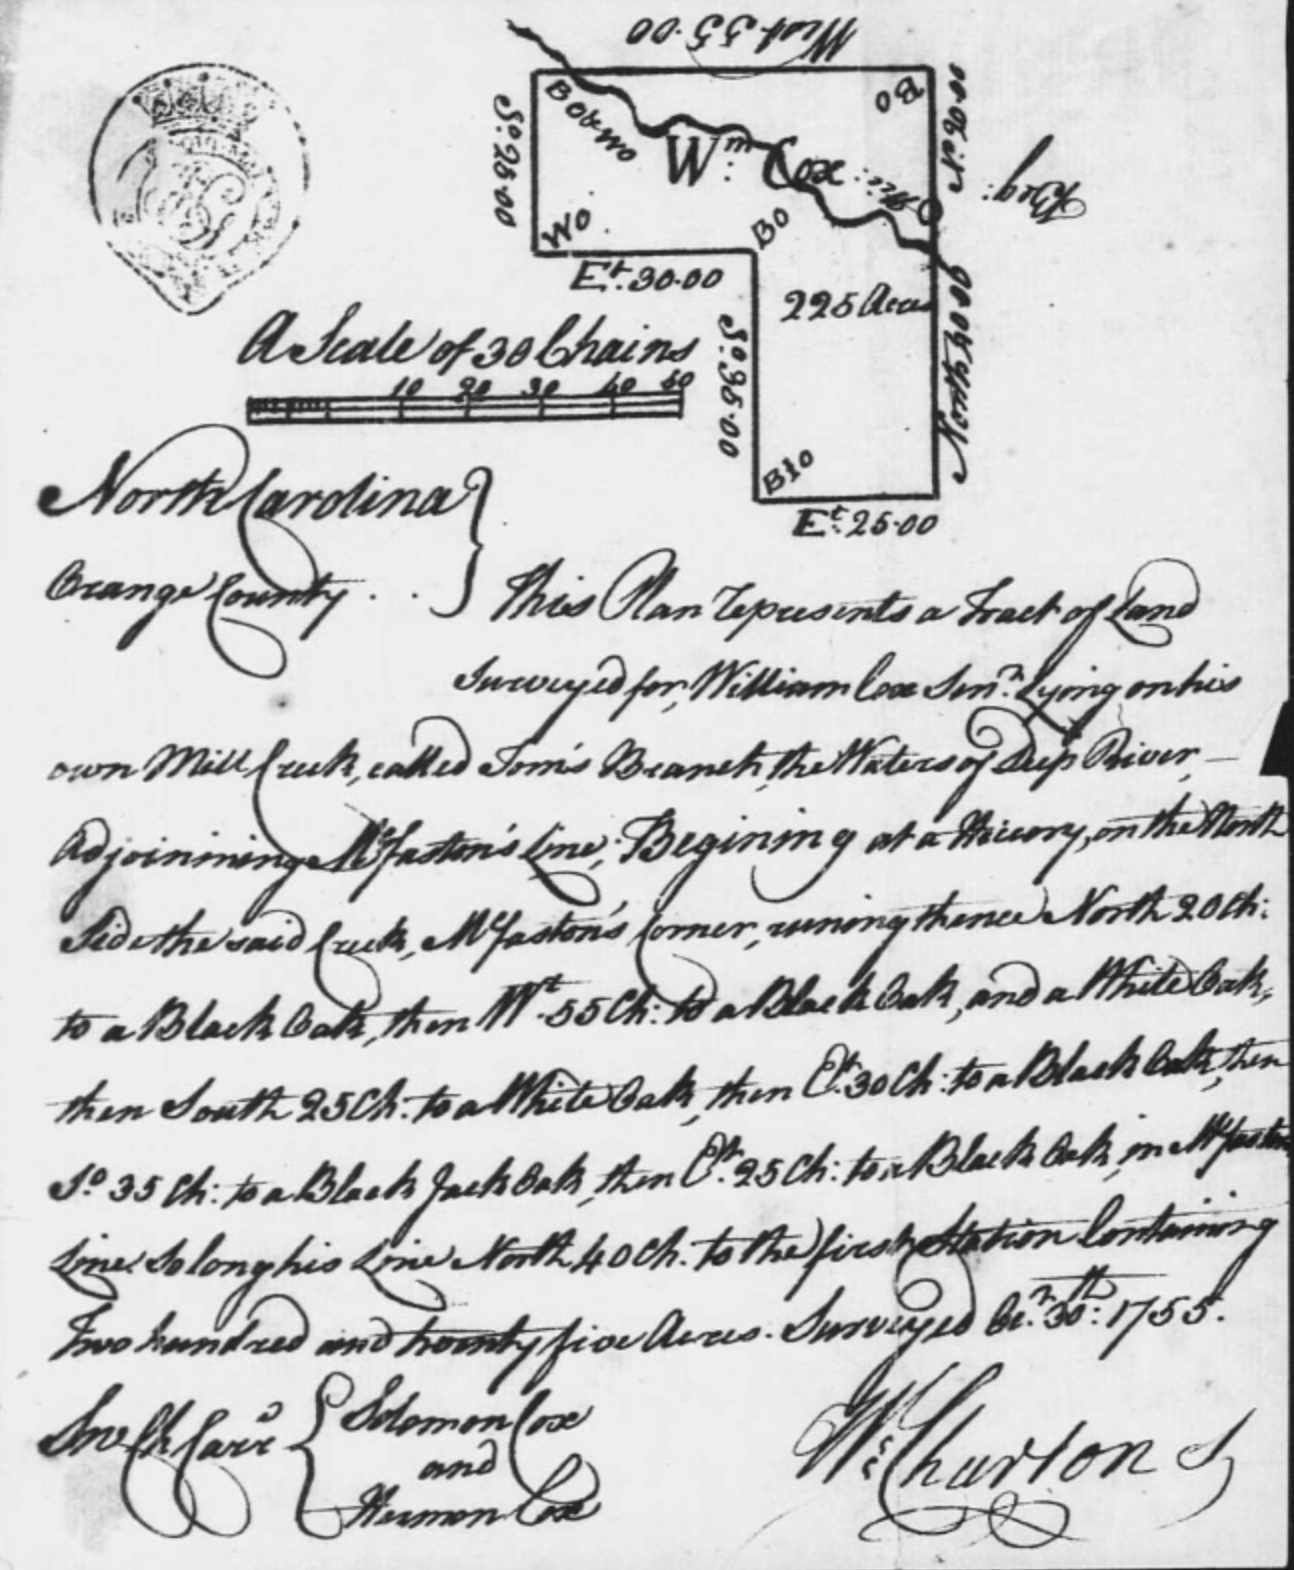 West 55.00
Bo & Wo
Bo
So. 25.00
No. 20.00
Wm. Cox:
Hic:
Beg:
Wo
Bo
Et. 30.00
225 Acres
A Scale of 30 Chains
10 20 30 40 50
So. 35.00
North 40.00
BJo
Et. 25.00
North Carolina
Orange County
This Plan Represents a Tract of Land
Surveyed for, William Cox Senr. Lying on his
own Mill Creek, called Tom's Branch, the Waters of Deep River,
Adjoinining McFaston's Line; Begining at a Hicory, on the North
Side the said Creek, McFaston's Corner, runing thence North 20 Ch:
to a Black Oak, then Wt. 55 Ch: to a Black Oak, and a White Oak,
then South 25 Ch: to a White Oak, then Et. 30 Ch: to a Black Oak, then
So. 35 Ch: to a Black Jack Oak, then Et. 25 Ch: to a Black Oak, in McFaston
Line So long his Line North 40 Ch. to the first Station Containing
Two hundred and twenty five Acres. Surveyed 30th: 1755.
Sw Ch Carr
Solomon Cox
and
Hermon Cox
Wm: Churton S